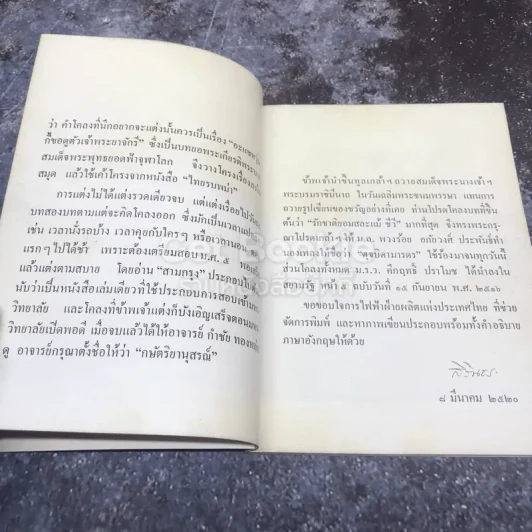 ว่า คำโคลงที่นึกอยากจะแต่งนั้นควรเป็นเรื่อง
ก็ขอดูตัวเจ้าพระยาจักรี" ซึ่งเป็นบทยอพระเกียรติพระบาท
สมเด็จพระพุทธยอดฟ้าจุฬาโลก จึงวางโครงเรื่อง
สมุด แล้วใช้เค้าโครงจากหนังสือ "ไทยรบพม่า"
การแต่งไม่ได้แต่งรวดเดียวจบ แต่แต่งเรื่อยไปวันละ
บทสองบทตามแต่จะคิดโคลงออก ซึ่งมักเป็นเวลา
เช่น เวลานั่งรถบ้าง เวลาคุยกับใครๆ หรือเวลานอน
แรกๆ ไปได้ช้า เพราะต้องเตรียมสอบ ม.ศ. ๕ พอ
แล้วแต่งตามสบาย โดยอ่าน "สามกรุง" ประกอบไป
นับว่าเป็นหนังสือเล่มเดียวที่ใช้ประกอบการสอบเข้ามหา
วิทยาลัย และโคลงที่ข้าพเจ้าแต่งก็บังเอิญเสร็จตอนมหา
วิทยาลัยเปิดพอดี เมื่อจบแล้วได้ให้อาจารย์ กำชัย ทองหล่อ
ดู อาจารย์กรุณาตั้งชื่อให้ว่า "กษัตริยานุสรณ์"
ข้าพเจ้านำขึ้นทูลเกล้าฯ ถวายสมเด็จพระนางเจ้าฯ
พระบรมราชินีนาถ ในวันเฉลิมพระชนมพรรษา แทนการ
ถวายรูปเขียนของขวัญอย่างที่เคย ท่านโปรดโคลงบทที่ขึ้น
ต้นว่า "รักชาติยอมสละแม้ ชีวี" มากที่สุด ซึ่งทรงพระกรุ-
ณาโปรดเกล้าฯ ให้ ม.ล. พวงร้อย อภัยวงศ์ ประพันธ์ทำ
นองเพลงในชื่อว่า "ดุจบิดามารดร" ใช้ร้องมาจนทุกวันนี้
ส่วนโคลงทั้งหมด ม.ร.ว. คึกฤทธิ์ ปราโมช ได้นำลงใน
สยามรัฐ หน้า ๕ ฉบับวันที่ ๑๕ กันยายน พ.ศ. ๒๕๑๖
ขอขอบใจการไฟฟ้าฝ่ายผลิตแห่งประเทศไทย ที่ช่วย
จัดการพิมพ์ และหาภาพเขียนประกอบพร้อมทั้งคำอธิบาย
ภาษาอังกฤษให้ด้วย
สิรินธร
๘ มีนาคม ๒๕๒๐